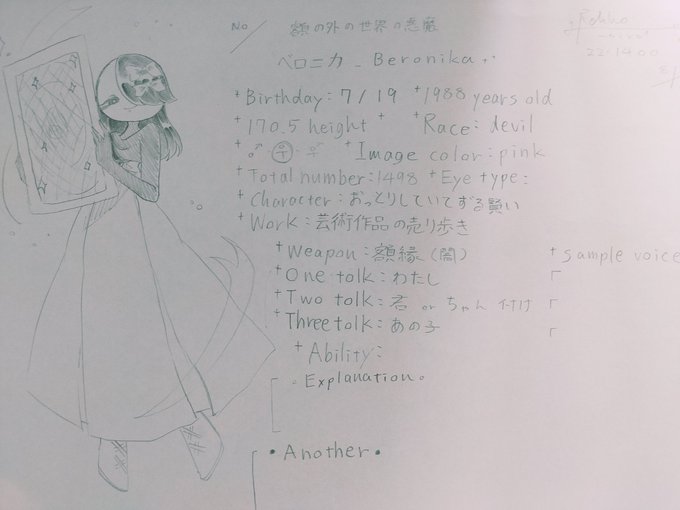 No 額の外の世界の悪魔
ベロニカ _ Beronika
+Birthday: 7/19 +1988 years old
+170.5 height + +Race: devil
+♂ ♀ +Image color: pink
+Total number: 1498 +Eye type:
+Character: おっとりしていてずる賢い
+Work: 芸術作品の売り歩き
+Weapon: 額縁(闇)
+One tolk: わたし
+Two tolk: 君 or ちゃん付け
+Three tolk: あの子
+Ability:
• Explanation •
• Another •
+ sample voice
「
「
「
22:1400